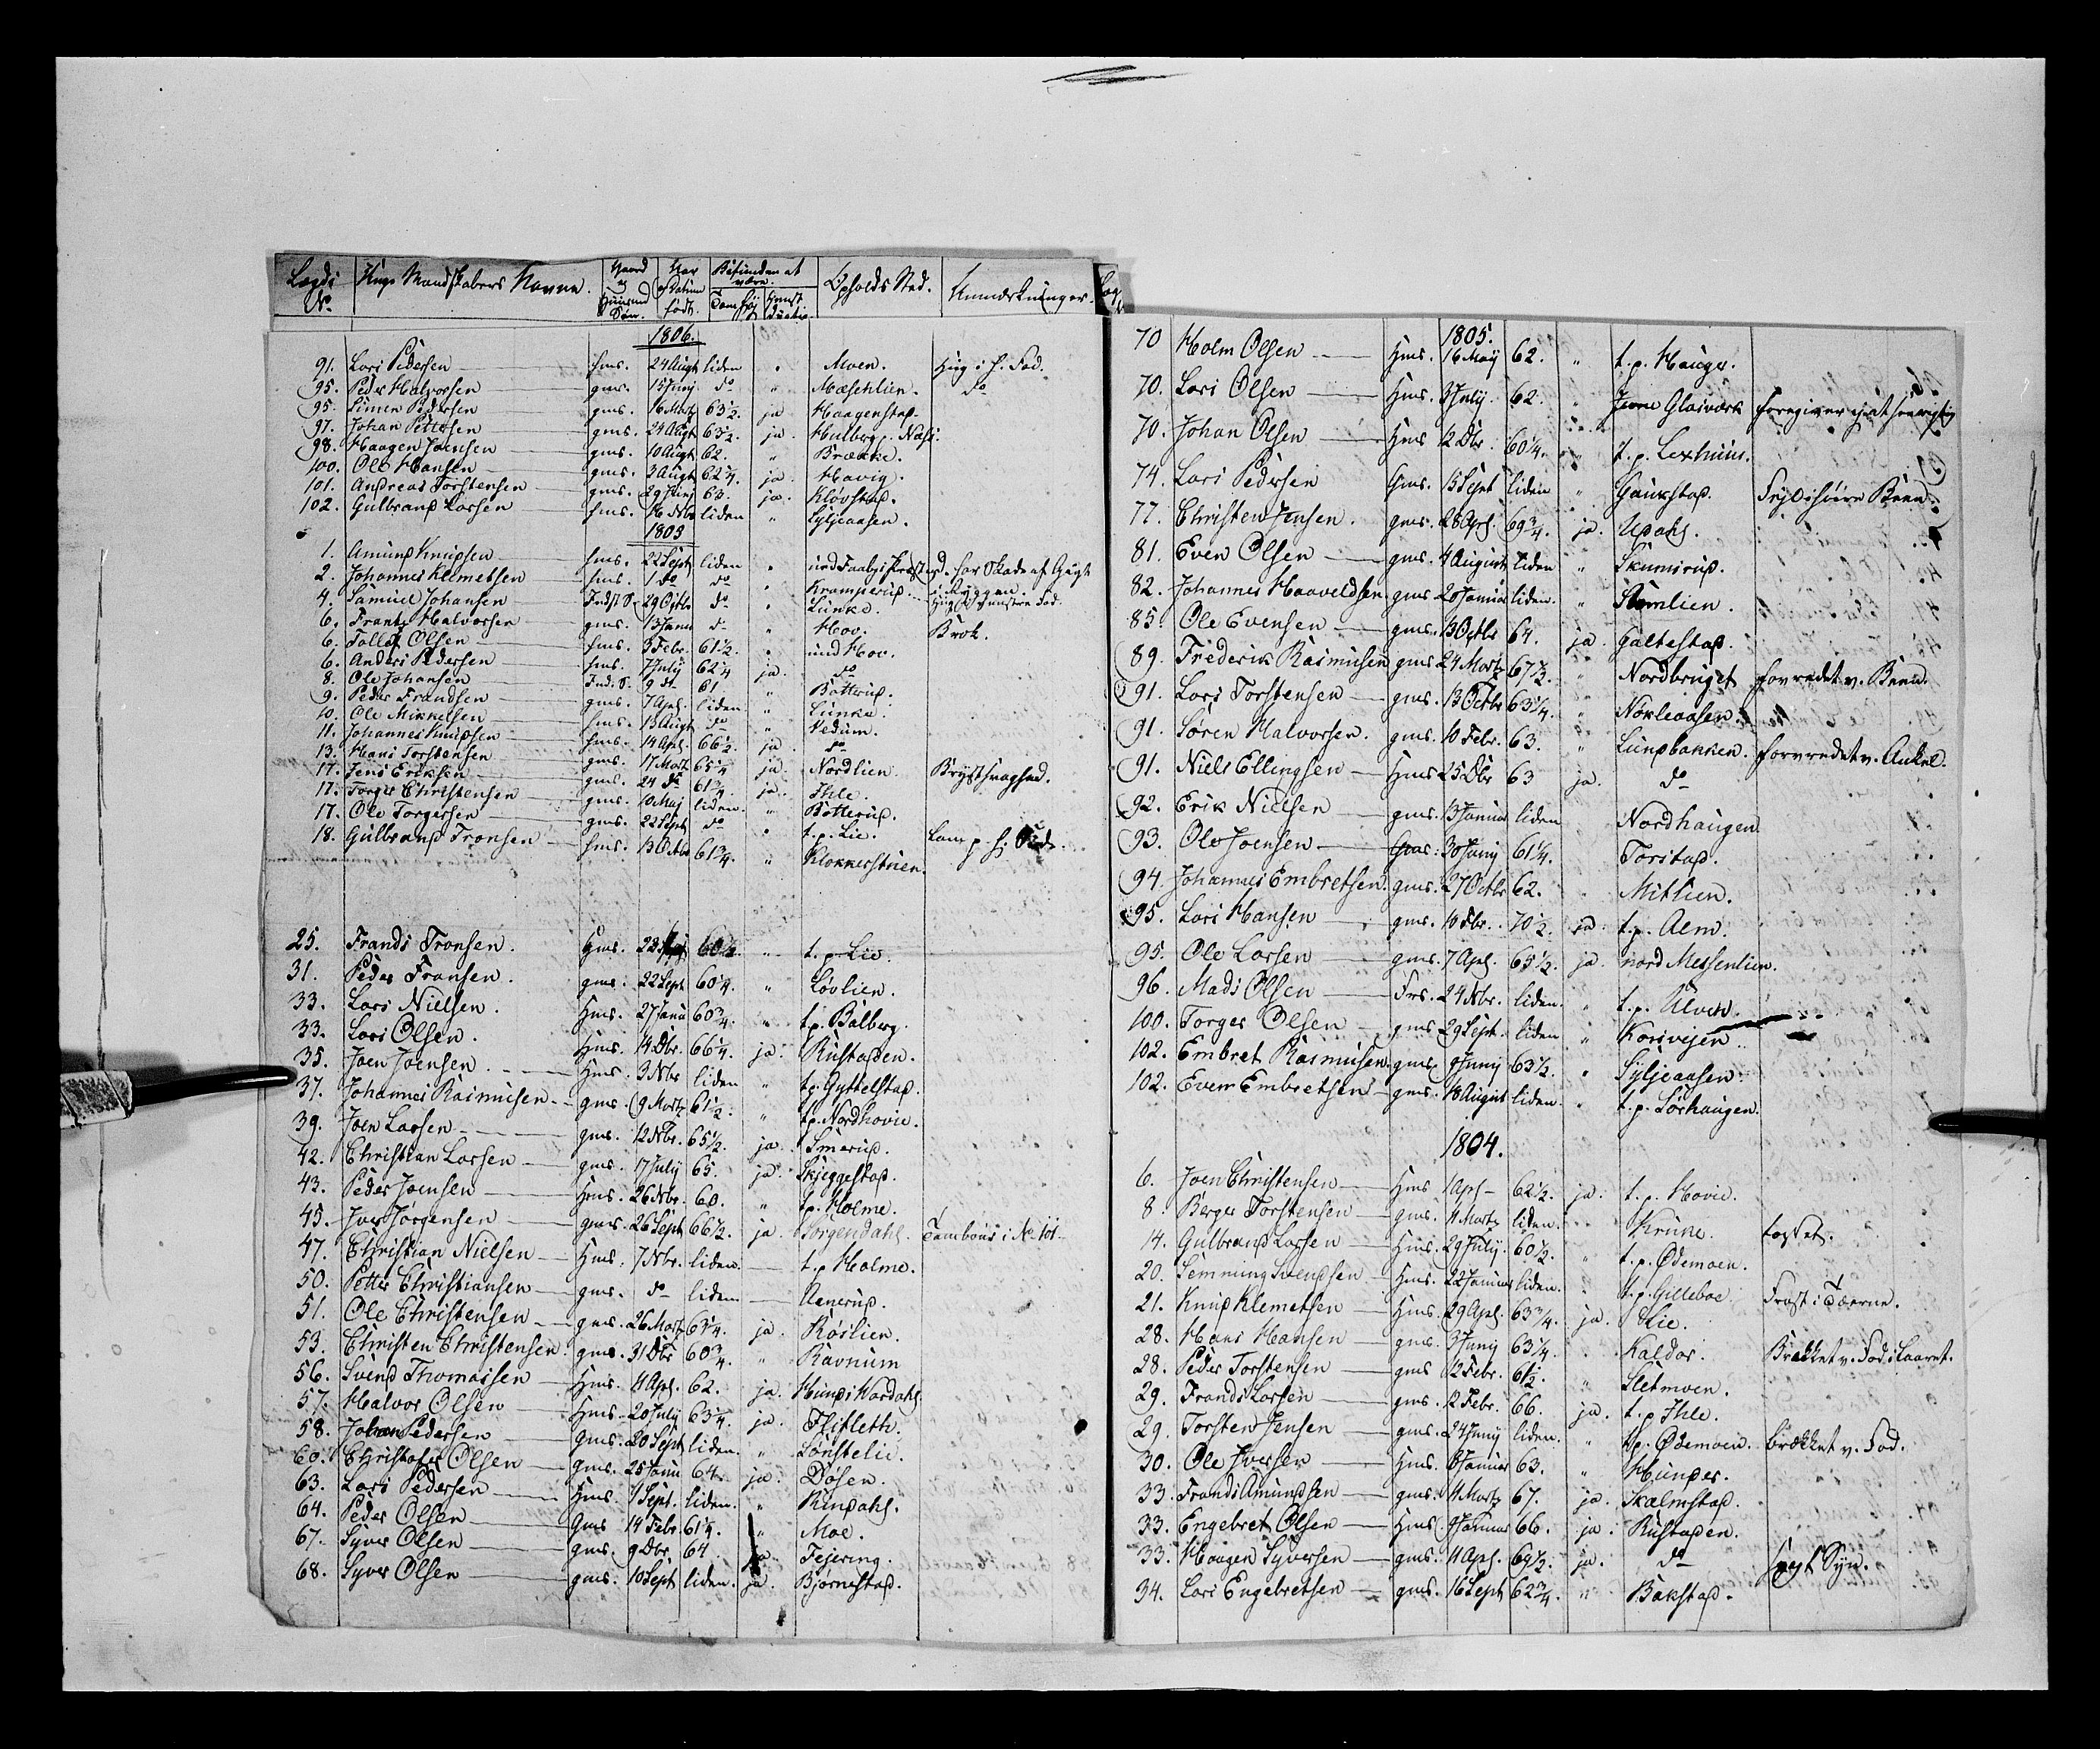 Lægds No. Unge Mandskabers Navne. Gaard og Huusmd Søn. Aar og Datum født. Befunden at være. Tom høj Opholds Sted. Anmærkninger.
1806.
91. Lars Pedersen hms. 24 Augt liden " Moen. Hug i h. Fod.
95. Peder Halvorsen gms. 15 Juny do " Mæsehlien. do
95. Simen Pedersen gms. 16 Martz 63 1/2. ja Haagenstad.
97. Johan Pettersen gms. 24 Augt 63 1/2. ja. Hulberg. Næs.
98. Haagen Joensen gms. 10 Augt 62. " Brække.
100. Ole Hansen gms. 3 Augt 62 1/4. ja. Havig.
101. Andreas Torstensen gms. 29 Juny 63. ja. Kløvstad.
102. Gulbrand Larsen hms. 16 Nbr liden " Syljeaasen.
1805
1. Amund Knudsen hms. 22 Sept liden " und Faabergs Præstgd. har Skade af Gigt i Ryggen.
2. Johannes Klemetsen hms. 1 do do " Kramperud. Hug i venstre Fod.
4. Samuel Johansen Inds. S. 29 Octbr do " Lunke.
6. Frantz Halvorsen gms. 13 Janu do " Hov. Brok.
6. Tollef Olsen hms. 3 Febr. 61 1/2. " und Hov.
6. Anders Pedersen hms. 7 July 62 1/4 ja. do
8. Ole Johansen Ind. S. 9 do 61 " Botterud.
9. Peder Frandsen gms. 7 Apl. liden. " Lunke.
10. Ole Mikkelsen hms. 13 Augt do " Vedum.
11. Johannes Knudsen hms. 14 Apl. 66 1/2 ja. do
13. Hans Torstensen gms. 17 Martz 65 1/4 ja. Nordlien. Brystsvaghed.
17. Jens Eriksen gms. 24 do 61 3/4. ja. Ihle.
17. Torger Christensen gms. 10 Maj liden. " Botterud.
17. Ole Torgersen gms. 22 Sept do " t. p. Lie. Lam p. h. Fod.
18. Gulbrand Fronsen hms. 13 Octbr 61 3/4. " Klokkerstuen.
25. Frands Fronsen. Hms. 23 Maj 60 1/2 " t. p. Lie.
31. Peder Fransen. gms. 22 Sept 60 1/4. " Løvlien.
33. Lars Nielsen. Hms. 27 Janu 60 3/4. " t. p. Balberg.
33. Lars Olsen. Hms. 14 Dbr. 66 1/4. ja. Rustaden.
35. Joen Joensen. Hms. 3 Nbr liden " t. p. Gyttelstad.
37. Johannes Rasmusen gms. 9 Martz 61 1/2. " t. p. Nordhovie.
39. Joen Larsen gms. 12 Nbr. 65 1/2. ja. Smerud.
42. Christian Larsen gms. 17 July 65. ja. Skjeggestad.
43. Peder Joensen Hms. 26 Nbr. 60. " t. p. Holme.
45. Iver Jørgensen gms. 26 Sept 66 1/2. ja Jørgendahl. Tambour i No 101
47. Christian Nielsen Hms. 7 Nbr. liden. t. p. Holme.
50. Petter Christiansen gms. do liden Aanerud.
51. Ole Christensen gms. 26 Martz 63 1/4. ja. Røislien.
53. Christen Christensen gms. 31 Dbr 60 3/4. " Ravnum
56. Svend Thomassen Hms. 4 Apl. 62. ja. Hunds Hardahl.
57. Halvor Olsen Hms. 20 July 63 1/4. ja. Flifleth.
58. Johan Pedersen gms. 20 Sept liden. " Lønstelie.
60. Christofer Olsen gms. 25 Janu 64. ja. Døsen.
63. Lars Pedersen Hms. 4 Sept. liden. " Rindahl.
64. Peder Olsen gms 14 Febr. 61 1/4. " Moe.
67. Syver Olsen gms. 9 Dbr 64 ja. Fejering.
68. Syver Olsen gms. 10 Sept liden. ja. Bjørnestad.
1805.
70 Holm Olsen Hms. 16 Maij 62. " t. p. Hauger.
70. Lars Olsen Hms. 3 July. 62. " Glasværk foregiver ej at
70. Johan Olsen Hms 12 Dbr. 60 1/4. " t. p. Lexhuus.
74. Lars Pedersen Gms. 15 Sept liden " Gaukstad. Been.
77. Christen Jensen. gms. 28 Apl. 69 3/4. ja. Updahl.
81. Even Olsen gms. 4 August liden " Skumsrud.
82. Johannes Haaveldsen. gms. 20 Januar liden. " Stemlien.
85. Ole Evensen gms. 13 Octbr 64. ja. Galtestad.
89. Frederik Rasmusen gms 24 Martz 67 1/2. " Nordbryet forvredet v. Been.
91. Lars Torstensen gms. 13 Octbr 63 1/4. " Nøkleaasen.
91. Søren Halvorsen. gms. 10 Febr. 63. " Lundbakken. forvredet v. Ankel.
91. Niels Ellingsen Hms 25 Dbr 63 ja. do
92. Erik Nielsen gms. 13 Januar liden Nordhaugen
93. Ole Joensen gms. 30 Juny 61 1/4. Torstad.
94. Johannes Embretsen. gms. 27 Octbr 62. " Mitlien.
95. Lars Hansen gms. 10 Dbr. 70 1/2. ja. t. p. Aem.
95. Ole Larsen gms. 7 Apl. 65 1/2. ja. nord Messenlien.
96. Mads Olsen Frs. 24 Nbr. liden. " t. p. Ulven.
100. Torger Olsen gms 29 Sept. liden " Korsvejen.
102. Embret Rasmusen. gms. 9 Juny 63 1/2. " Syljeaasen.
102. Even Embretsen gms. 18 August liden. " t. p. Sørhaugen.
1804.
6. Joen Christensen Hms 1 Apl 62 1/2. ja. t. p. Hovie.
8. Berger Torstensen gms. 4 Martz liden. " Kruke. tosset.
14. Gulbrand Larsen Hms. 29 July. 60 1/2. " t. p. Ødemoen.
20. Semming Svendsen Hms. 22 Januar liden. " t. p. Gilleboe Frost i Tæerne.
21. Knud Klemetsen Hms. 29 Apl. 63 3/4. ja. Lie.
28. Hans Hansen gms. 3 Juny 63 1/4. " Kaldor. Brækket v. Fod i Laaret.
28. Peder Torstensen gms 12 Febr. 61 1/2. " Sletmoen.
29. Frands Larsen gms. 12 Febr. 66. ja. t. p. Ihle.
29. Torsten Jensen gms. 24 Juny liden. " t. p. Ødemoen. brækket v. Fod.
30. Ole Iversen Hms. 8 Januar 63. " Hunder.
33. Frands Amundsen gms. 4 Martz 67. ja. Skalmstad.
33. Engebret Olsen Hms. 9 Januar 66. ja. Rustaden.
33. Haagen Syversen gms. 4 Apl. 69 1/2. ja. do svagt Syn.
34. Lars Engebretsen gms. 16 Sept 62 3/4. " Bakstad.